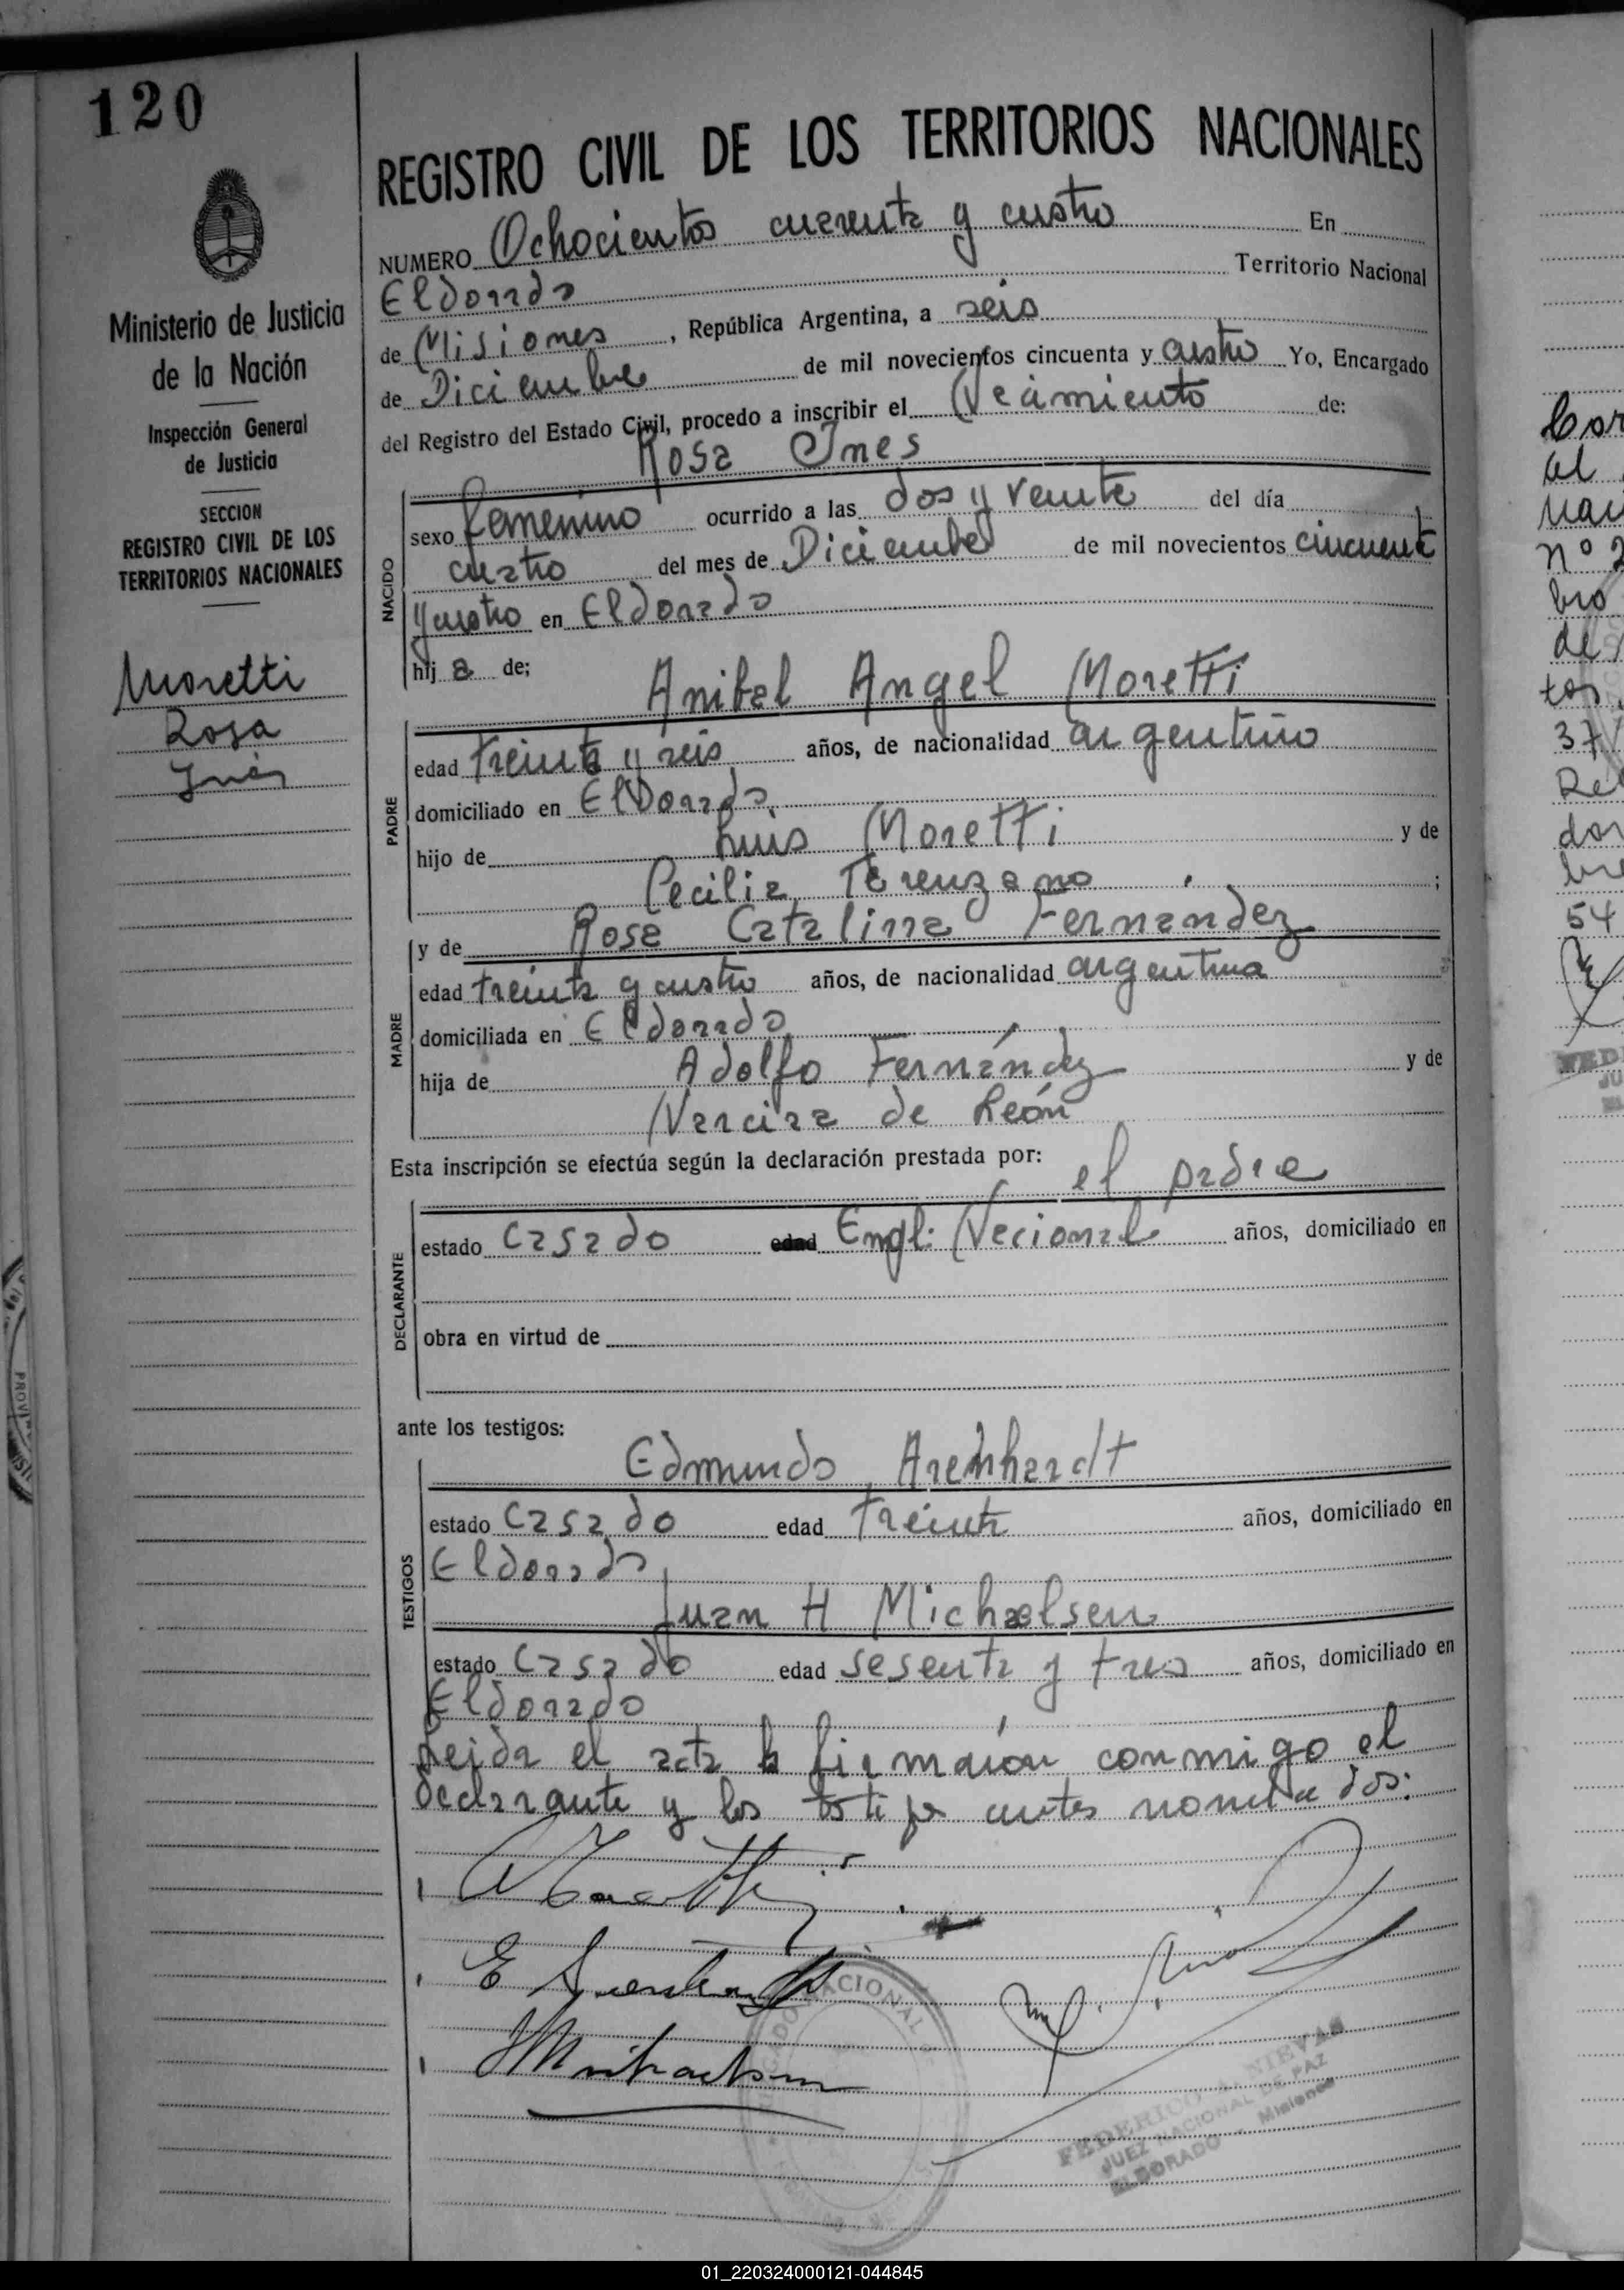 120
Ministerio de Justicia
de la Nación
Inspección General
de Justicia
SECCION
REGISTRO CIVIL DE LOS
TERRITORIOS NACIONALES
Moretti
Rosa
Inés
REGISTRO CIVIL DE LOS TERRITORIOS NACIONALES
NUMERO Ochocientos cuarenta y cuatro En
Eldorado Territorio Nacional
de Misiones, República Argentina, a seis
de Diciembre de mil novecientos cincuenta y cuatro Yo, Encargado
del Registro del Estado Civil, procedo a inscribir el Nacimiento de:
Rosa Ines
NACIDO
sexo femenino ocurrido a las dos y veinte del día
cuatro del mes de Diciembre de mil novecientos cincuenta
y cuatro en Eldorado
hij a de;
Anibal Angel Moretti
PADRE
edad treinta y seis años, de nacionalidad argentino
domiciliado en Eldorado
hijo de Luis Moretti y de
Cecilia Terenzano ;
y de Rosa Catalina Fernandez
MADRE
edad treinta y cuatro años, de nacionalidad argentina
domiciliada en Eldorado
hija de Adolfo Fernández y de
Narcisa de León
Esta inscripción se efectúa según la declaración prestada por:
el padre
DECLARANTE
estado Casado edad Empl: Nacional años, domiciliado en
obra en virtud de
ante los testigos:
Edmundo Arenhardt
TESTIGOS
estado Casado edad treinta años, domiciliado en
Eldorado
Juan H Michaelsen
estado Casado edad sesenta y tres años, domiciliado en
Eldorado
Leida el acta la firmaron conmigo el
declarante y los testigos antes nombrados:
FEDERICO A. NIEVAS
JUEZ NACIONAL DE PAZ
ELDORADO - Misiones
01_220324000121-044845